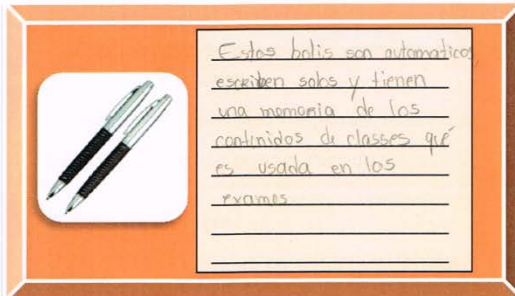 Estos bolis son automaticos,
escriben solos y tienen
una momoria de los
continidos de classes qué
es usada en los
examos